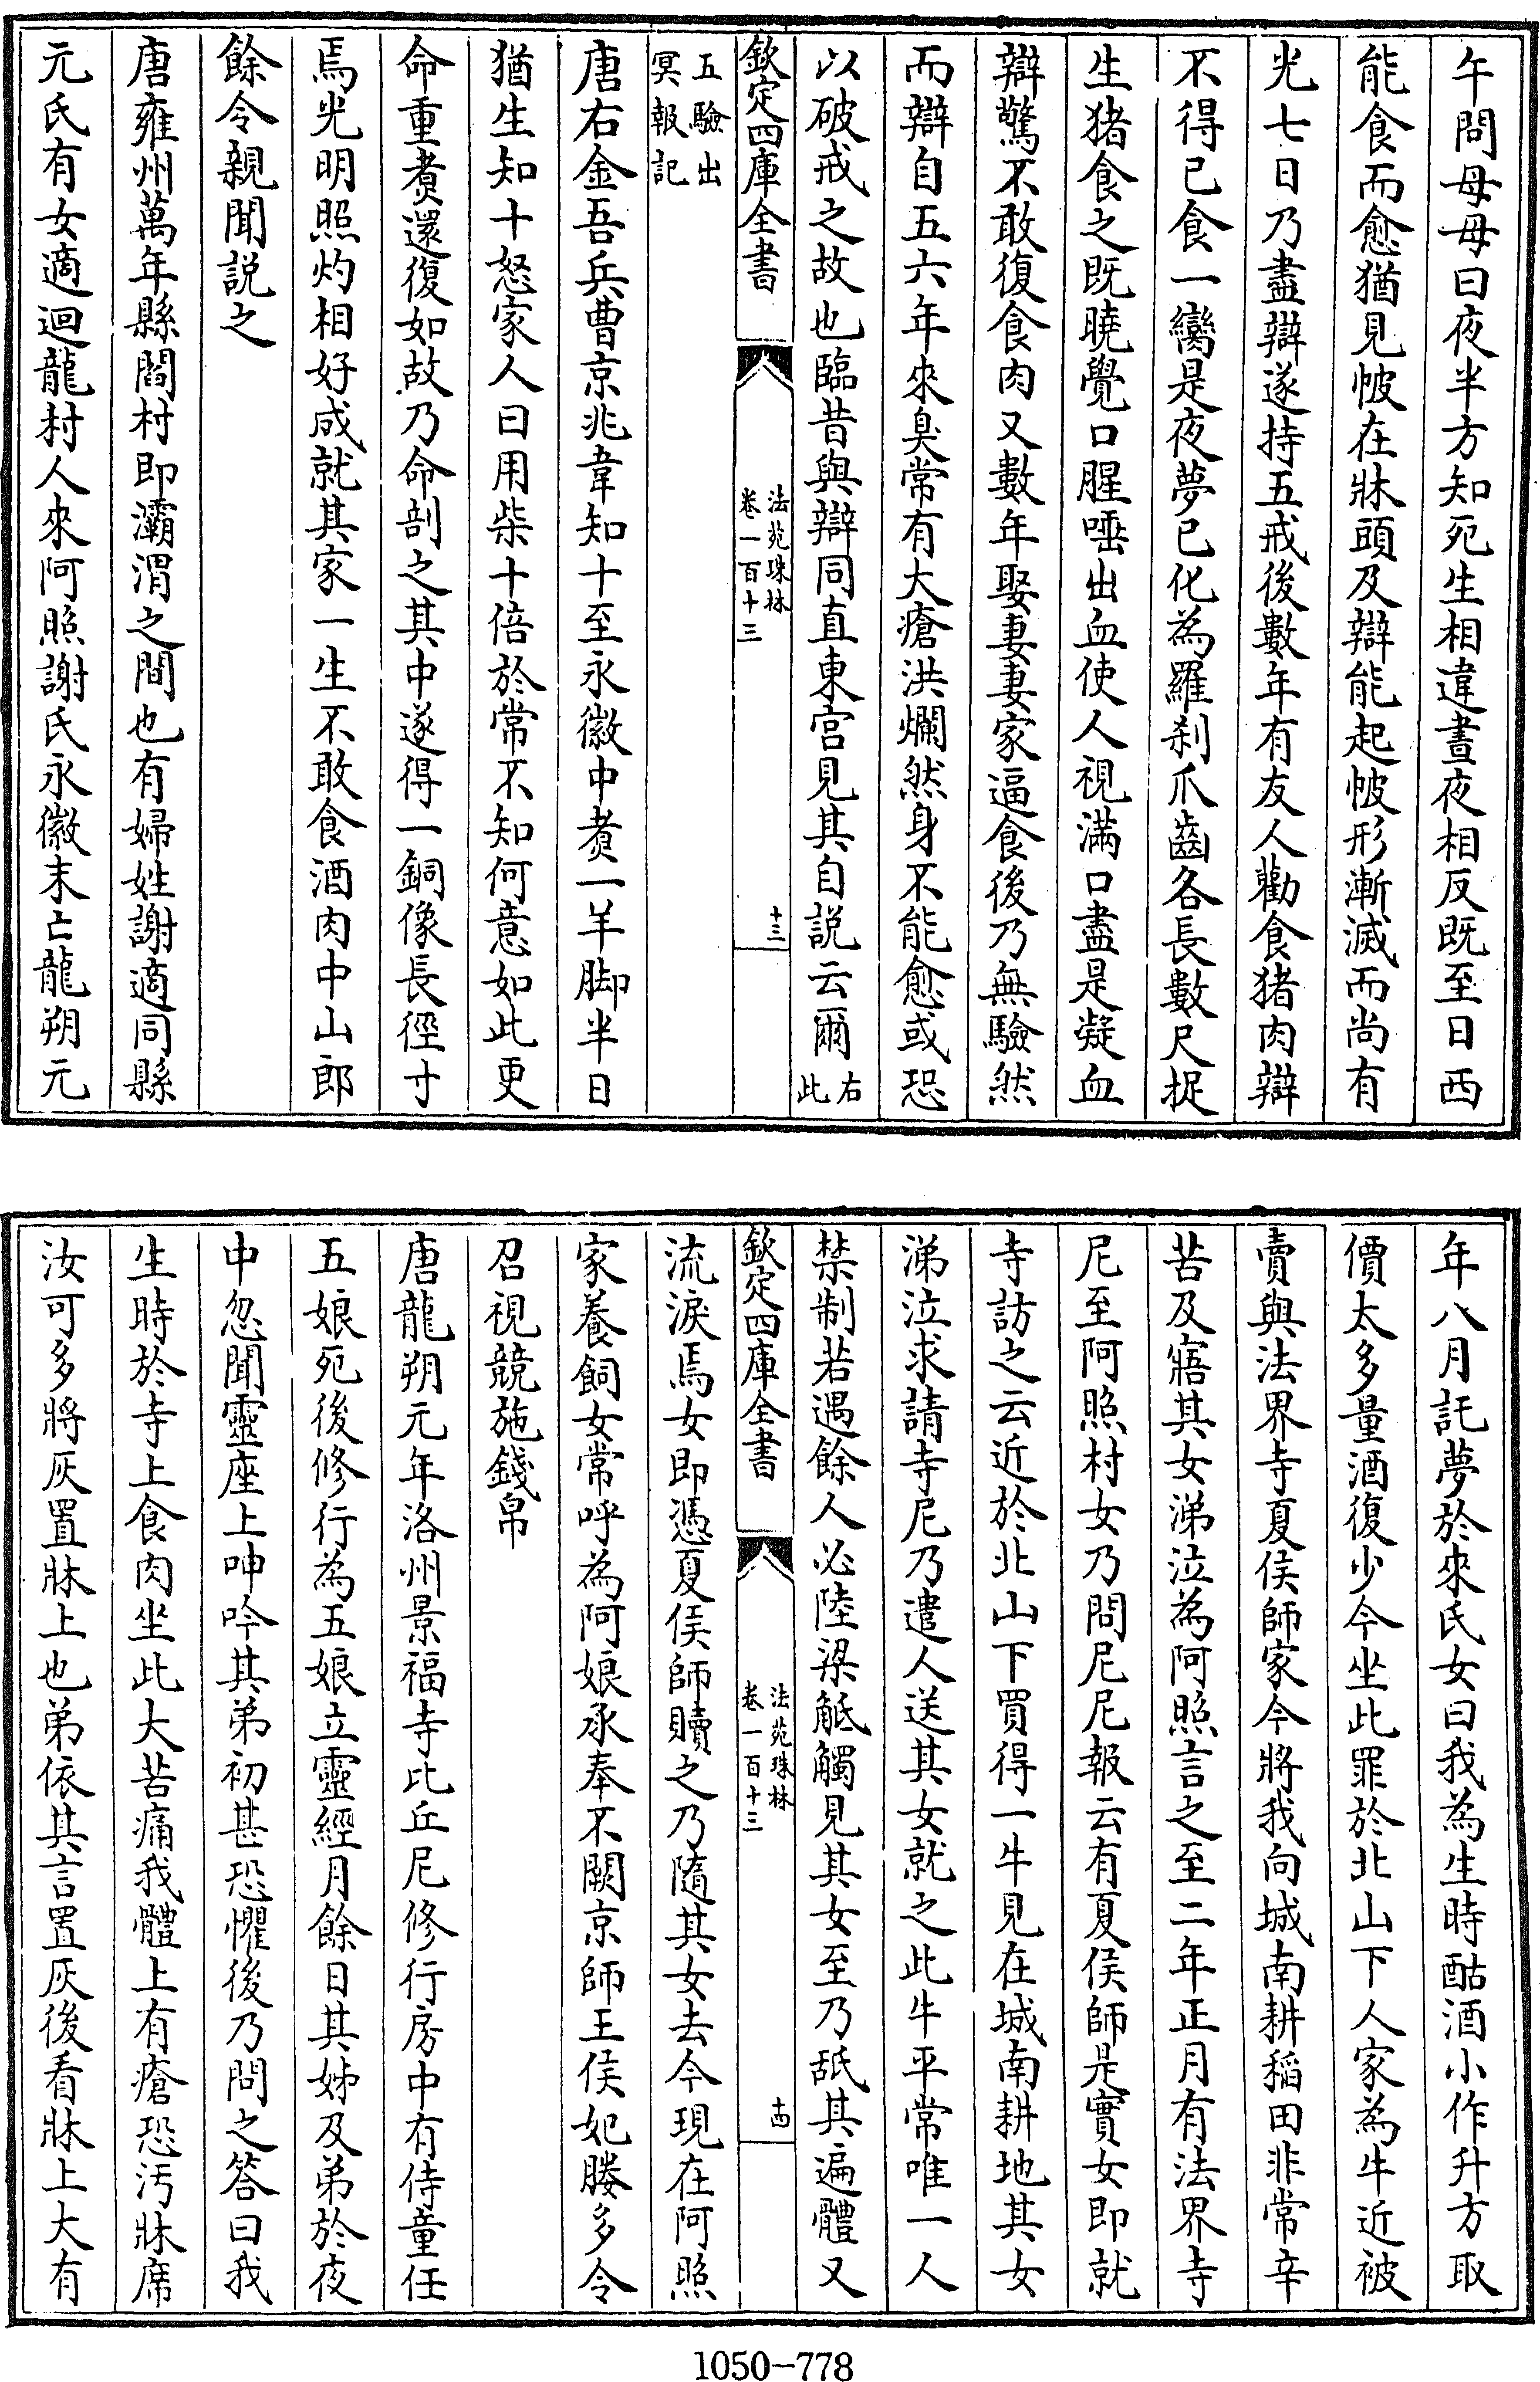 午問母母曰夜半方知死生相違晝夜相反既至日西
能食而愈猶見帔在牀頭及辯能起帔形漸滅而尚有
光七日乃盡辯遂持五戒後數年有友人勸食猪肉辯
不得已食一臠是夜夢已化為羅刹爪齒各長數尺捉
生猪食之既曉覺口腥唾出血使人視滿口盡是凝血
辯驚不敢復食肉又數年娶妻妻家逼食後乃無驗然
而辯自五六年來臭常有大瘡洪爛然身不能愈或恐
以破戒之故也臨昔與辯同直東宫見其自説云爾右此
欽定四庫全書
法苑珠林
卷一百十三
十三
五驗出
冥報記
唐右金吾兵曹京兆韋知十至永徽中煑一羊脚半日
猶生知十怒家人曰用柴十倍於常不知何意如此更
命重煑還復如故乃命剖之其中遂得一銅像長徑寸
焉光明照灼相好成就其家一生不敢食酒肉中山郎
餘令親聞説之
唐雍州萬年縣閻村即灞渭之間也有婦姓謝適同縣
元氏有女適迴龍村人來阿照謝氏永徽末亡龍朔元
年八月託夢於來氏女曰我為生時酤酒小作升方取
價太多量酒復少今坐此罪於北山下人家為牛近被
賣與法界寺夏侯師家今將我向城南耕稻田非常辛
苦及寤其女涕泣為阿照言之至二年正月有法界寺
尼至阿照村女乃問尼尼報云有夏侯師是實女即就
寺訪之云近於北山下買得一牛見在城南耕地其女
涕泣求請寺尼乃遣人送其女就之此牛平常唯一人
禁制若遇餘人必陸梁觝觸見其女至乃舐其遍體又
欽定四庫全書
法苑珠林
卷一百十三
十四
流淚焉女即憑夏侯師贖之乃隨其女去今現在阿照
家養飼女常呼為阿娘承奉不闕京師王侯妃媵多令
召視競施錢帛
唐龍朔元年洛州景福寺比丘尼修行房中有侍童伍
五娘死後修行為五娘立靈經月餘日其姊及弟於夜
中忽聞靈座上呻吟其弟初甚恐懼後乃問之答曰我
生時於寺上食肉坐此大苦痛我體上有瘡恐汚牀席
汝可多將灰置牀上也弟依其言置灰後看牀上大有
1050-778